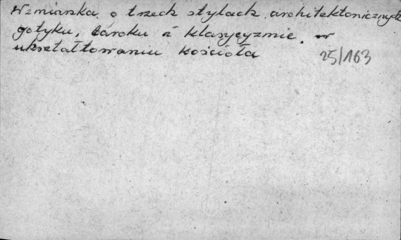 Wzmianka o trzech stylach architektonicznych
gotyku, baroku i klasycyzmie w
ukształtowaniu kościoła
25/163